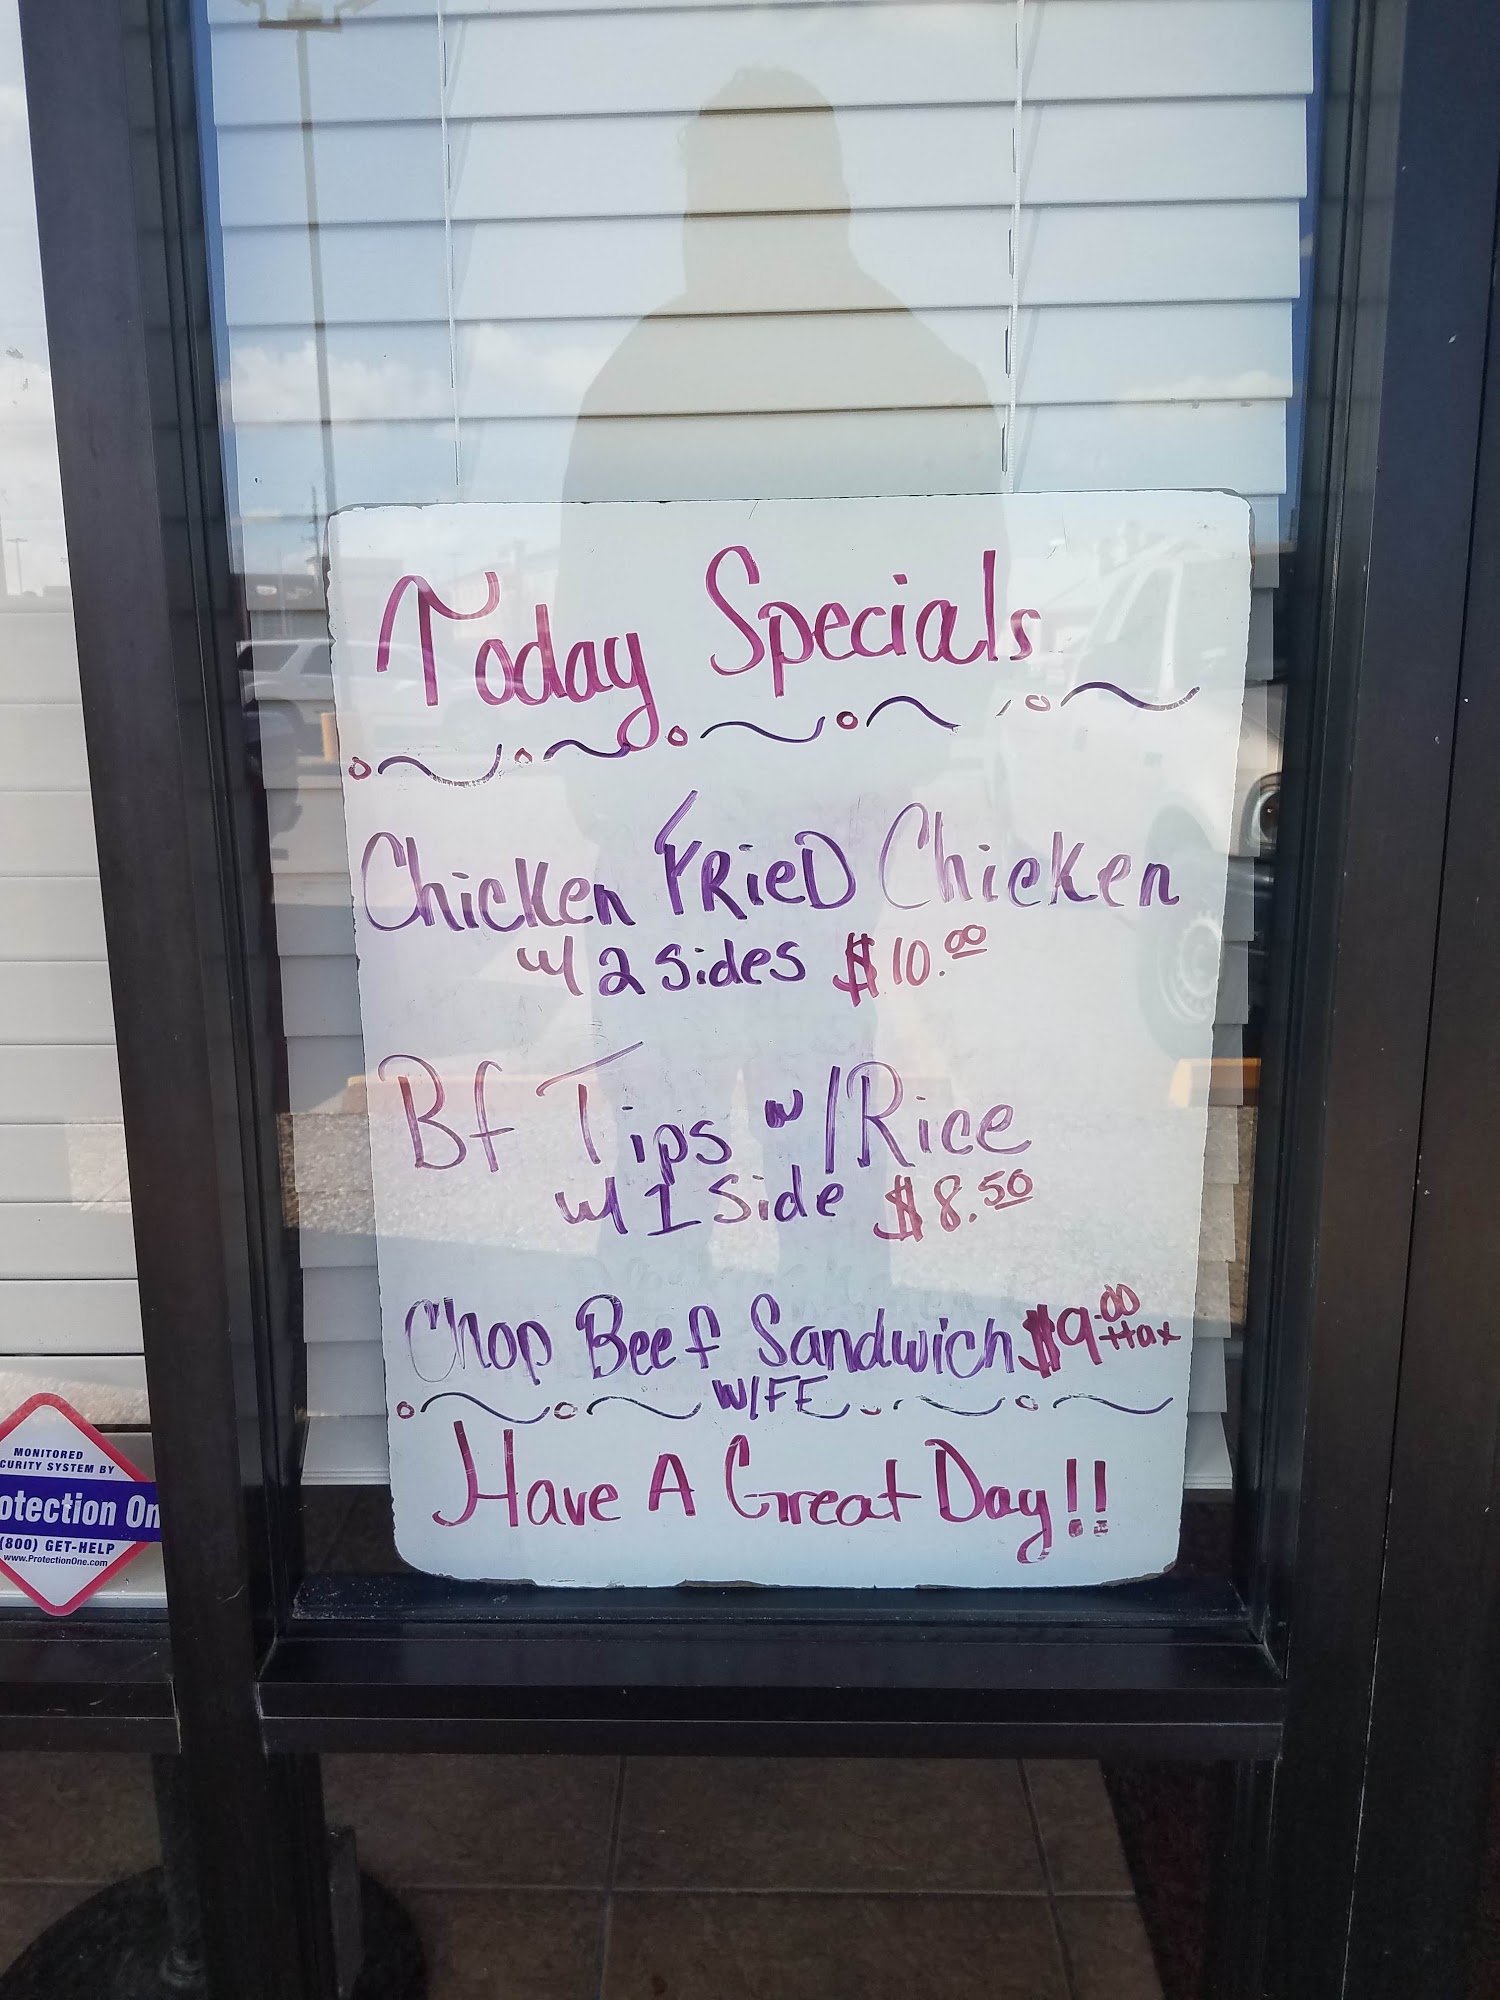 Today Specials
Chicken FRieD Chicken
w/ 2 sides $10.00
Bf Tips w/Rice
w/ 1 Side $8.50
Chop Beef Sandwich $9.00 +tax
W/FF
Have A Great Day!!
MONITORED
CURITY SYSTEM BY
otection On
(800) GET-HELP
www.ProtectionOne.com